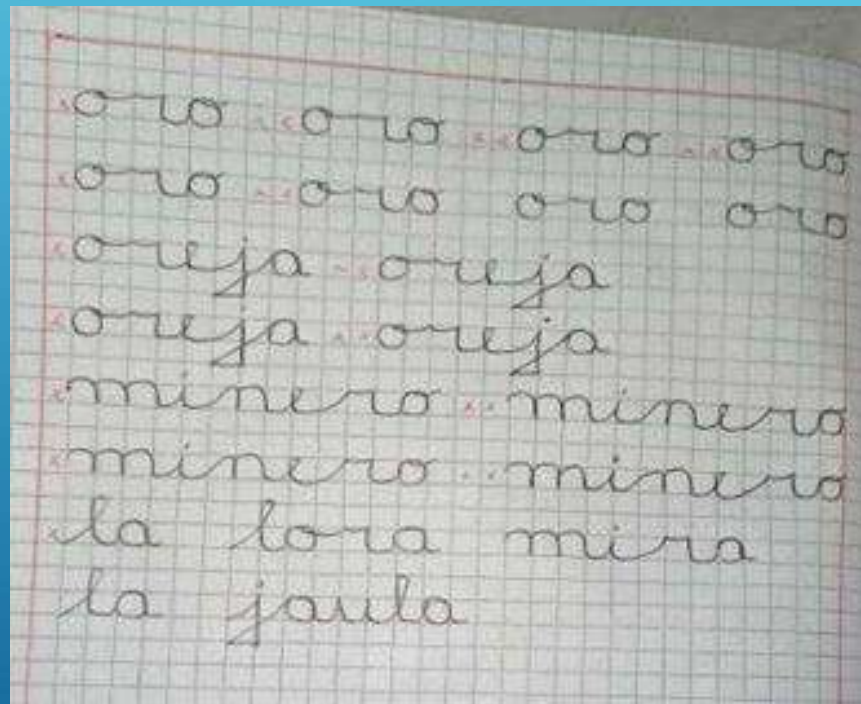 oro oro oro oro
oro oro oro oro
oreja oreja
oreja oreja
minero minero
minero minero
la lora mira
la jaula